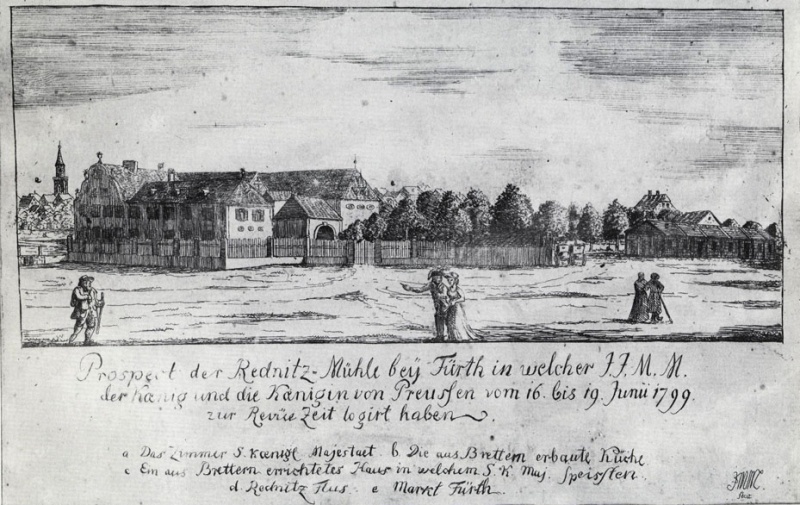 Prospect der Rednitz-Mühle beÿ Fürth in welcher J.J.M.M.
der Kœnig und die Kœnigin von Preussen vom 16. bis 19. Junii 1799.
zur Revüe Zeit logirt haben.
a Das Zimmer S. Kœnigl Majestaet. b Die aus Brettern erbaute Küche
c Ein aus Brettern errichtetes Haus in welchem S. K Maj. Speissten
d. Rednitz Flus. e Marckt Fürth.